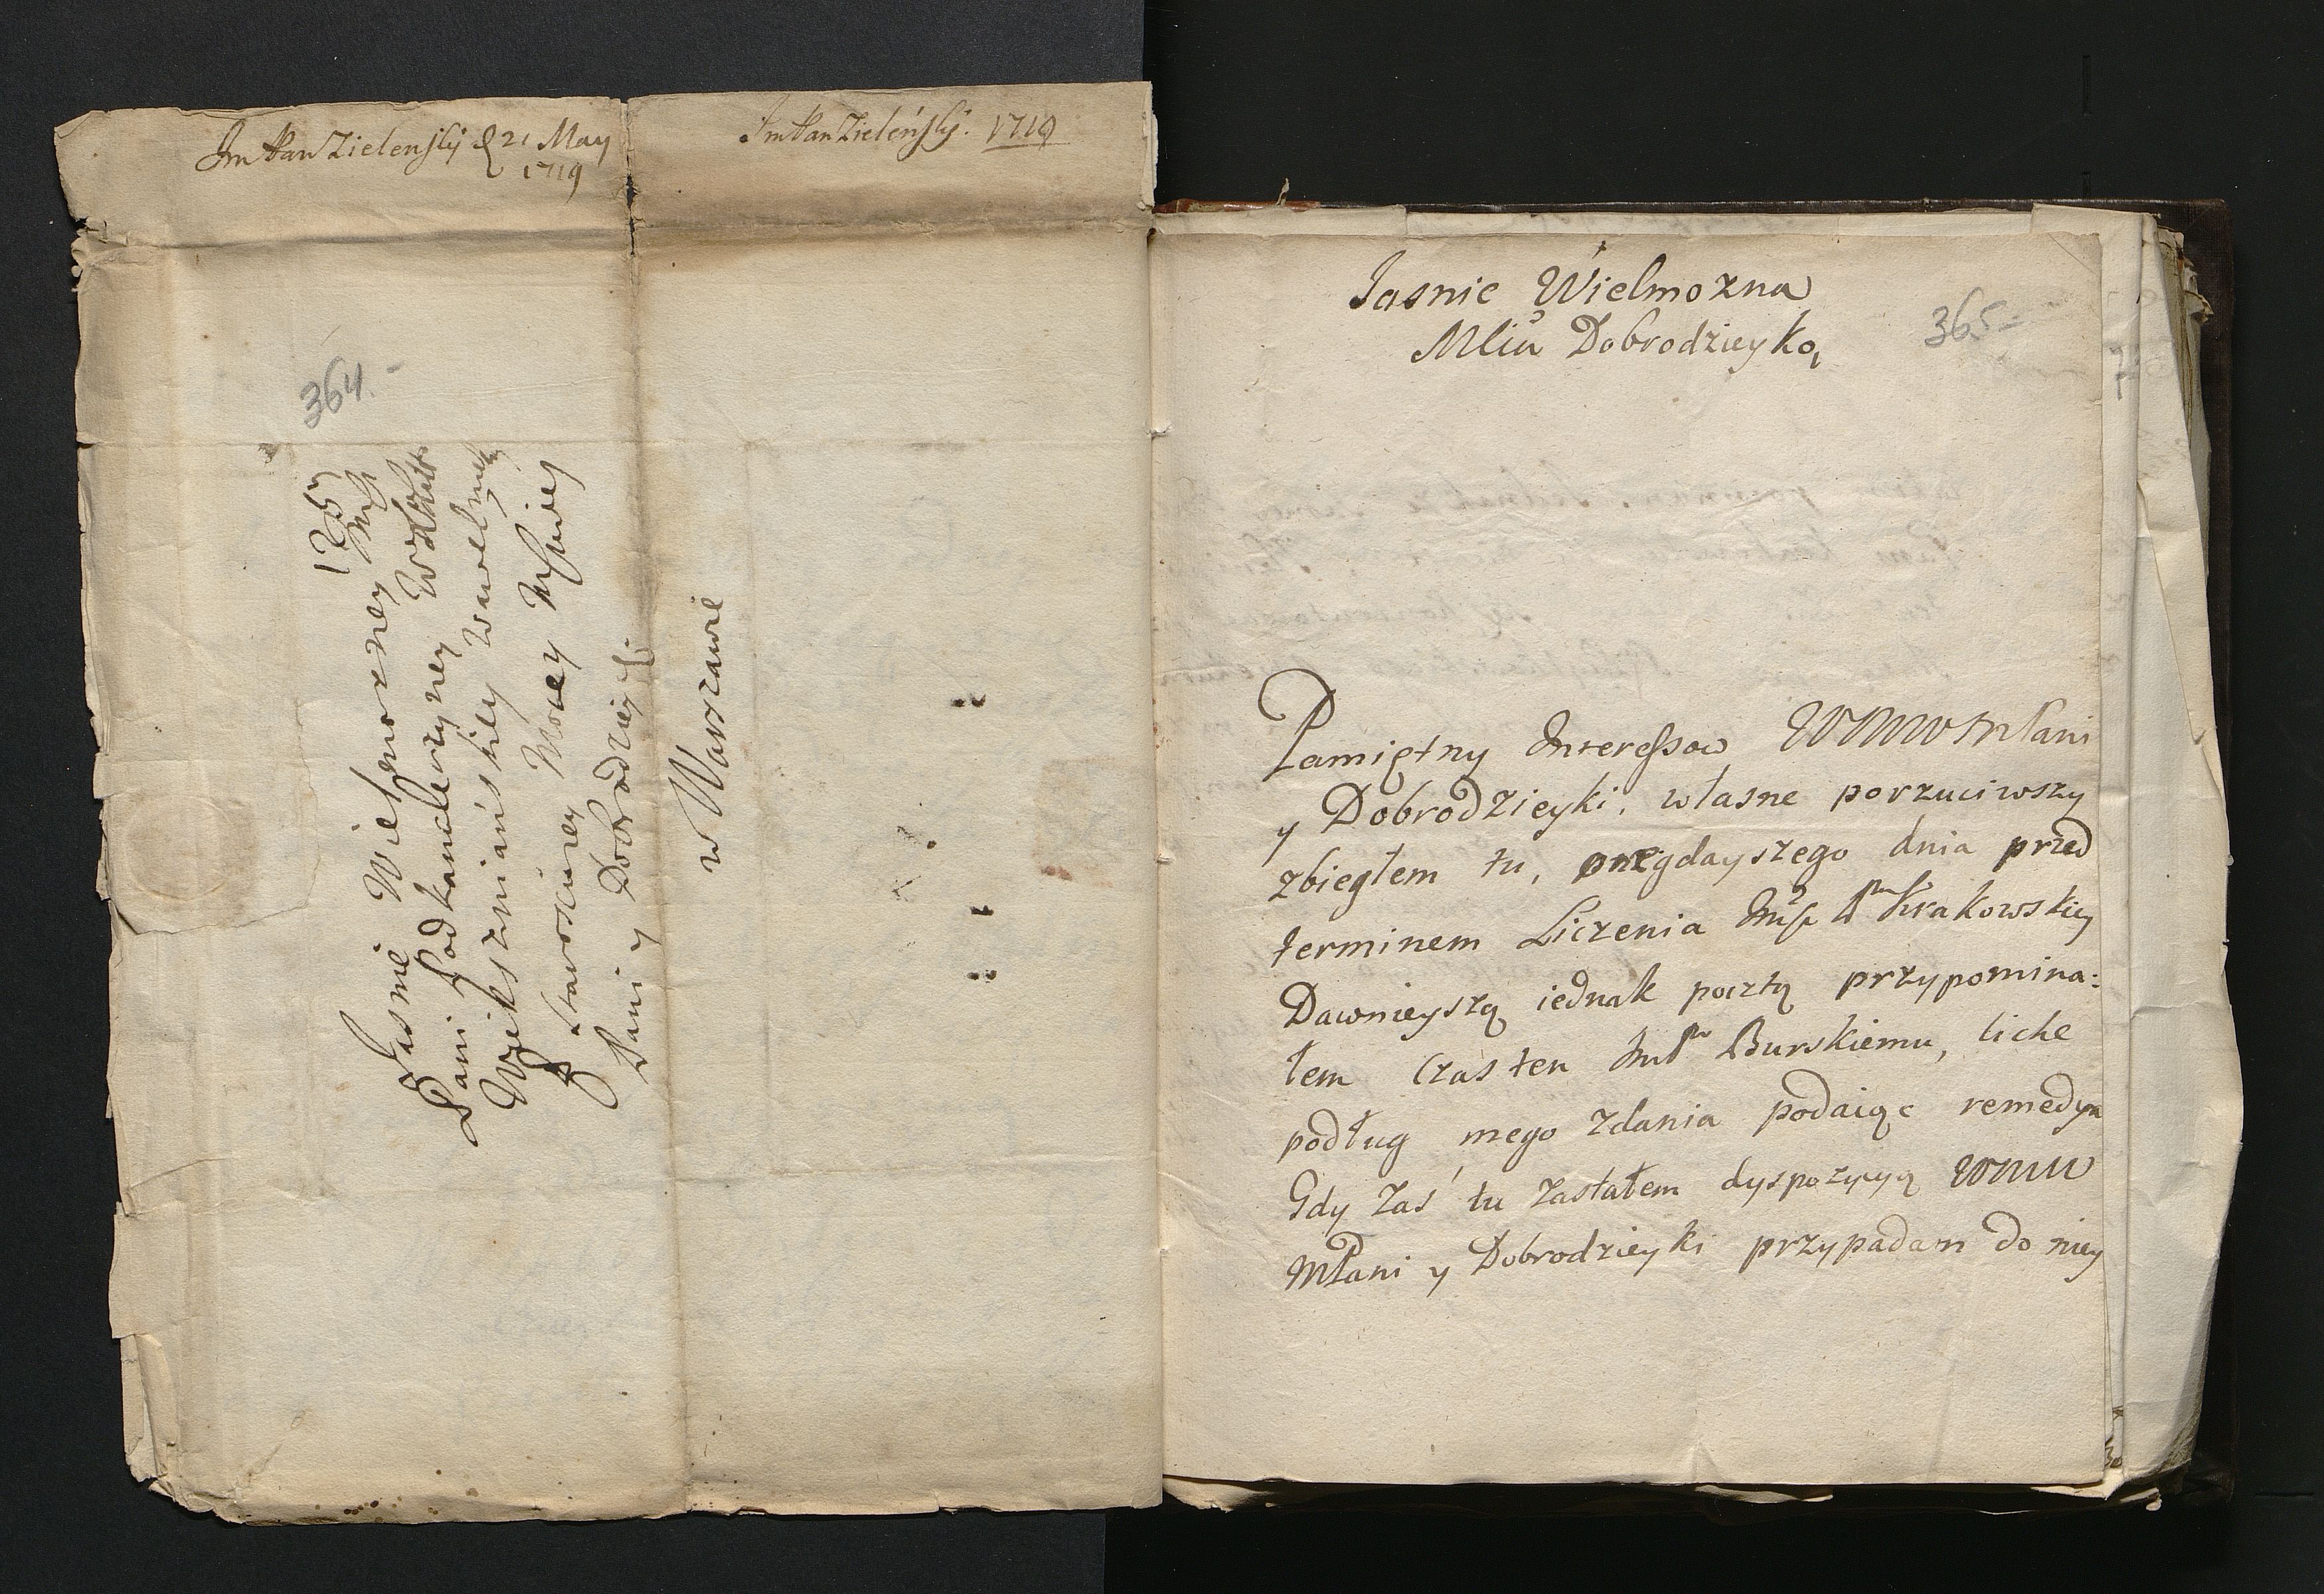 Im Pan Zielenskÿ d 21 May
1719
Im Pan Zielenskÿ. 1719
364.-
125
Jasnie Wielmozney Imsc
Pani Podkanclerzyney WXLitt
Wieksznianskiey
Starosciney Moiey Msciwey
Pani y Dobrodzieyki
w Warszawie
365-
Jasnie Wielmozna
Mscia Dobrodzieyko,
Pamiętny Interessow WMM Pani
y Dobrodzieyki, własne porzuciwszy
zbiegłem tu, onegdayszego dnia przed
terminem Liczenia Imsc Pni Krakowskiey
Dawnieyszą iednak pocztą przypomina:
łem Czas ten ImP Burskiemu, liche
podług mego zdania podaiąc remedya
Gdy zaś tu zastałem dyspozycyą WMM
MPani y Dobrodzieyki przypadam do niey